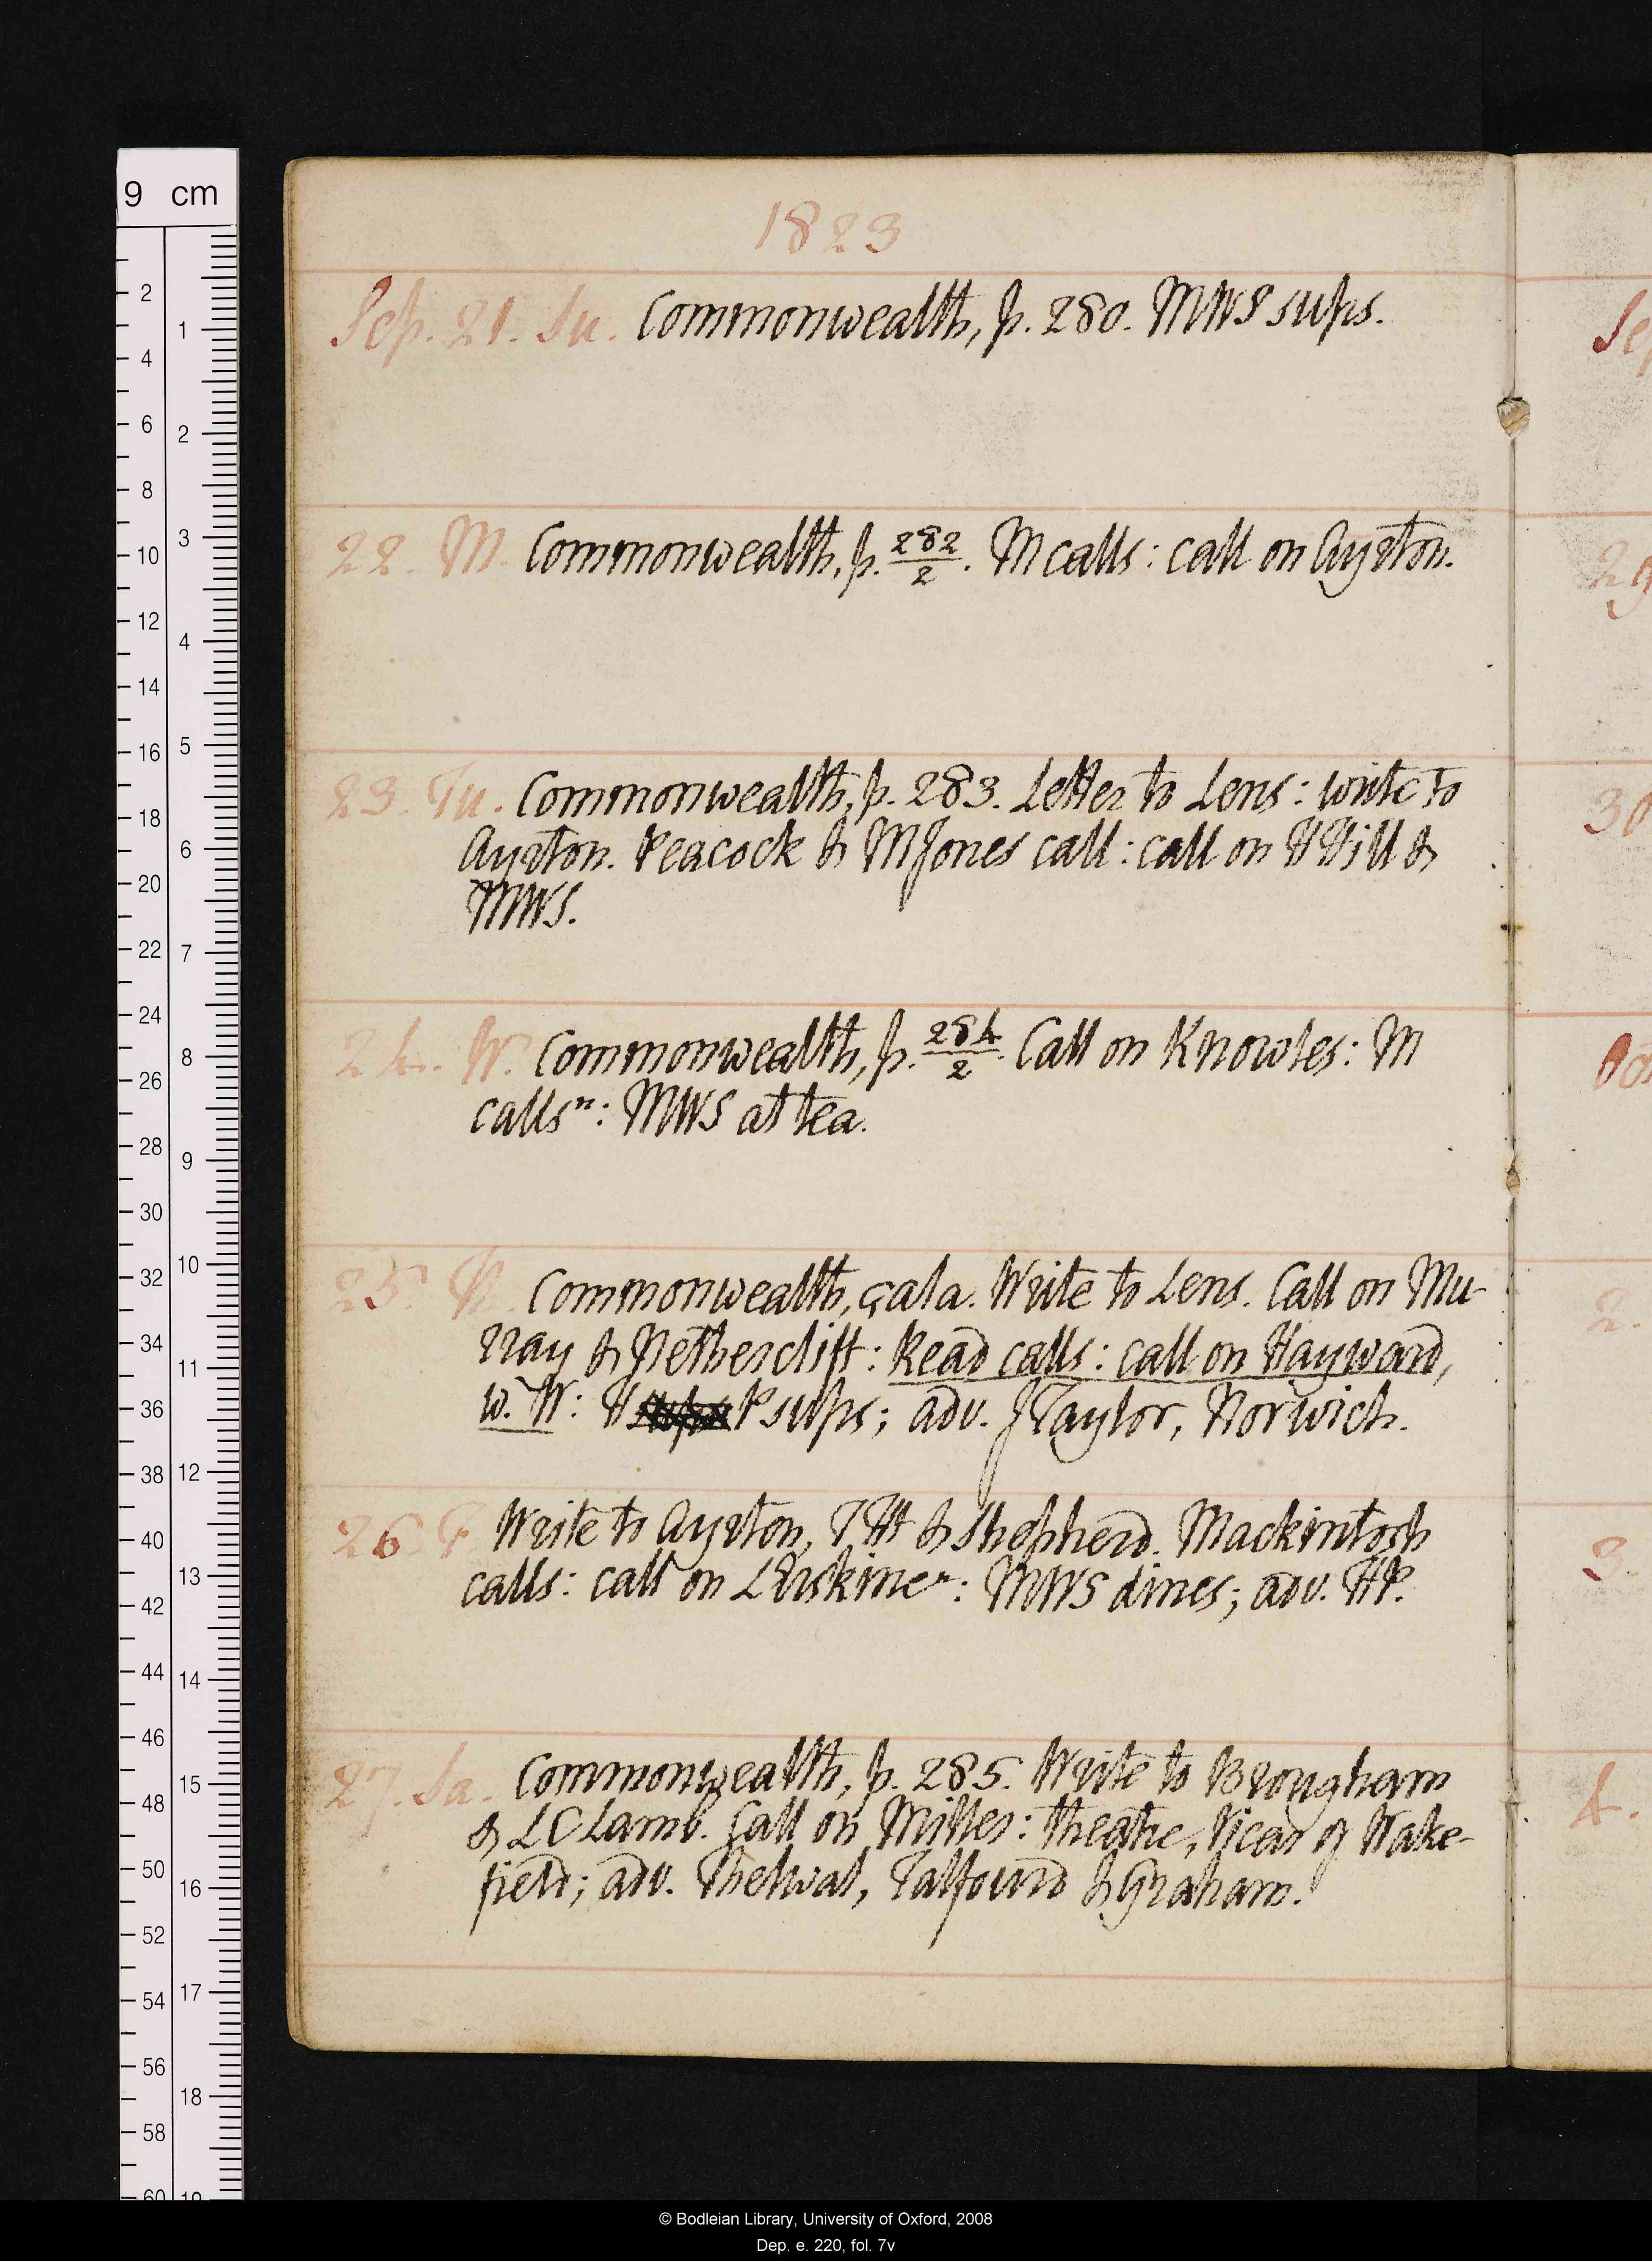 1823
Sep. 21. Su. Commonwealth, p. 280. MWS sups.
22. M. Commonwealth, p. 282/2. M calls: call on Ayrton.
23. Tu. Commonwealth, p. 283. Letter to Lens: write to
Ayrton. Peacock & MJones call: call on HHill &
MWS.
24. W. Commonwealth, p. 284/2. Call on Knowles: M
calls n: MWS at tea.
25. Th. Commonwealth, çala. Write to Lens. Call on Mu-
rray & Netherclift: Read calls: call on Hayward,
w. W: H P sups; adv. JTaylor, Norwich.
26. F. Write to Ayrton, TTH & Shepherd. Mackintosh
calls: call on LErskine n: MWS dines; adv. HP.
27. Sa. Commonwealth, p. 285. Write to Brougham
& LCLamb. Call on Miller: theatre, Vicar of Wake-
field; adv. Thelwal, Talfourd & Graham.
Sep
29
30
Oc
2.
3.
4.
9 cm
2
4
6
8
10
12
14
16
18
20
22
24
26
28
30
32
34
36
38
40
42
44
46
48
50
52
54
56
58
60
1
2
3
4
5
6
7
8
9
10
11
12
13
14
15
16
17
18
19
© Bodleian Library, University of Oxford, 2008
Dep. e. 220, fol. 7v